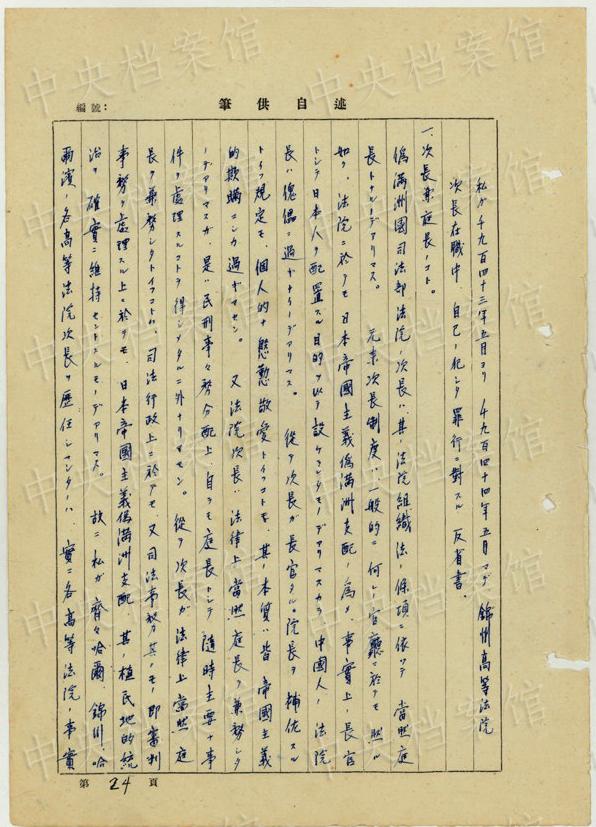 筆供自述
編號：
私ガ千九百四十三年五月ヨリ 千九百四十四年五月マデ 錦州高等法院
次長在職中、自己ノ犯シタ罪行ニ對スル 反省書.
一、次長兼庭長ノコト。
偽満洲國司法部法院ノ次長ハ、其ノ法院組織法ノ條項ニ依ッテ 當然庭
長トナルノデアリマス。 元来次長制度ハ、一般的ニ何レノ官廳ニ於テモ 然ル
如ク、法院ニ於テモ 日本帝國主義偽満洲支配ノ為メ、事實上ノ長官
トシテ日本人ヲ配置スル目的ヲ以テ設ケラレタモノデアリマスカラ 中國人ノ法院
長ハ傀儡ニ過ギナイノデアリマス。 從ッテ次長ガ長官タル院長ヲ補佐スル
トイフ規定モ、個人的ナ慇懃敬愛トイフコトモ、其ノ本質ハ皆帝國主義
的欺瞞ニシカ過ギマセン。 又法院次長ハ、法律上當然庭長ヲ兼務シタ
ノデアリマスガ、是ハ民刑事々務分配上、自ラモ庭長トシテ 隨時主要ナ事
件ヲ處理スルコトヲ得シメタルニ外ナリマセン。 從ッテ次長ガ法律上當然庭
長ヲ兼務シタトイフコトハ、司法行政上ニ於テモ、又司法事務其ノモノ即審判
事務ヲ處理スル上ニ於テモ、日本帝國主義偽満洲支配、其ノ植民地的統
治ヲ確實ニ維持セントスルモノデアリマス。 故ニ私ガ齊々哈爾、錦州、哈
爾濱ノ各高等法院次長ヲ歴任シマシタノハ、實ニ各高等法院ノ事實
第24頁
中央档案馆